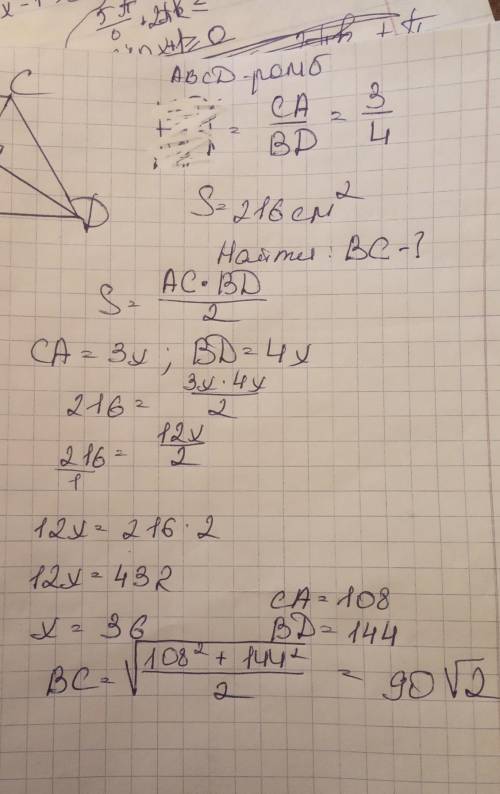 5π/6 + 2πk =
ABCD-ромб
C
= CA/BD = 3/4
S = 216 см²
D
Найти: BC-?
S = AC·BD/2
CA = 3x; BD = 4x
216 = 3x·4x/2
216/1 = 12x/2
12x = 216·2
12x = 432
CA = 108
x = 36
BD = 144
BC = √(108² + 144²/2) = 90√2